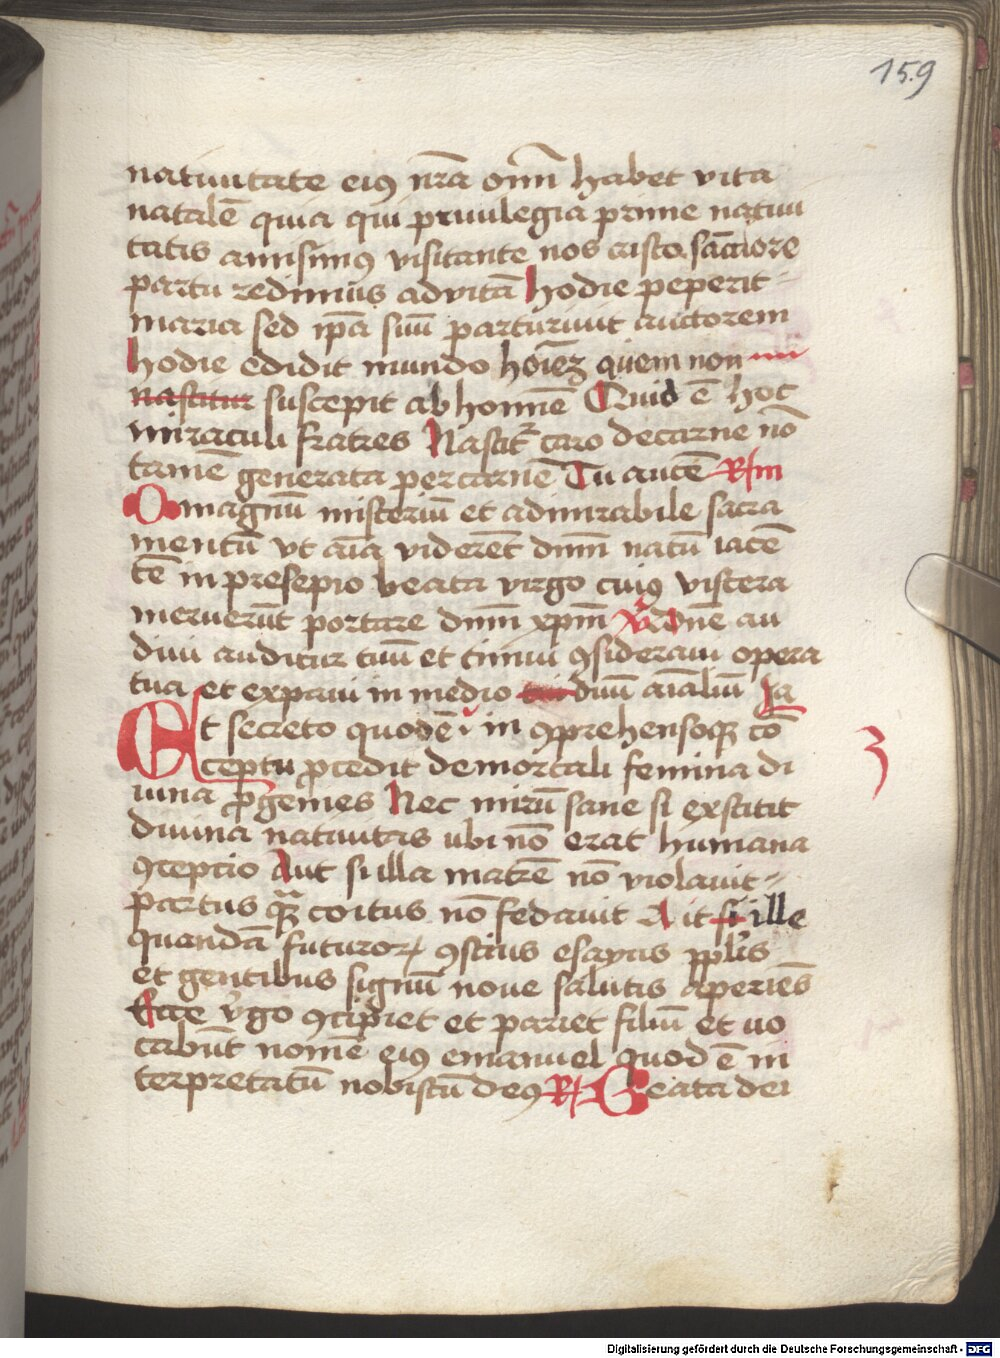 159
natiuitate eiꝯ nr̄a om̄ī habet vita
natalē quia qui priuilegia prime natiui
tatis amisimꝯ visitante nos casto sāctiore
partu redimus ad vitā hodie peperit
maria sed ip̄a suū parturiuit auctorem
hodie edidit mundo hoīeȝ quem non
nascitur suscepit ab homīe Quid ē hoc
miraculi fratres Nascit᷑ caro de carne nō
tamē generata per carnē Tu autē R̸m
O magnū misteriū et admirabile sacra
mentū vt aīa viderēt dnm̄ natū iacē
tē in presepio beata virgo cuiꝯ viscera
meruerūt portare dnm̄ xpm̄ V̸ Dn̄e au
diui auditur tuū et timui ꝯsideraui opera
tua et expaui in medio duū aīaliū Ja
Et secreto quodē in ꝯprehensoqꝫ cō
ceptu ꝓcedit de mortali femina di
uina ꝓgenies Nec mirū sane si exstitit
diuina natiuitas ubi nō erat humana
ꝯceptio Aut si illa matrē nō violauit
partus quā coitus nō fedauit Ait si ille
quandā futuroꝝ ꝯscius esayas ppl̄is
et gentibus signū noue salutis aperiēs
Ecce v̓go ꝯcipiet et pariet filiū et uo
cabūt nomē eiꝯ emanuel quod ē in
terpretatū nobiscū deꝯ R̸ Beata dei
3
Digitalisierung gefördert durch die Deutsche Forschungsgemeinschaft - DFG